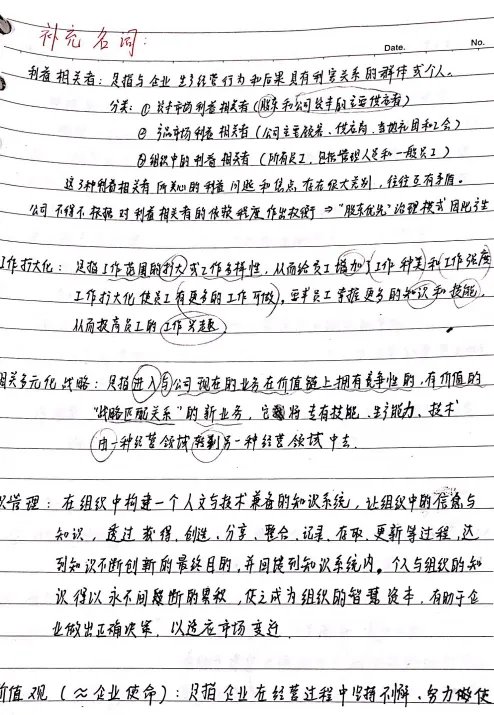 补充名词:
Date.
No.
利益相关者: 是指与企业生产经营行为和后果具有利害关系的群体或个人。
分类: ① 资本市场利益相关者 (股东和公司资本的主要供应者)
② 产品市场利益相关者 (公司主要顾客、供应商、当地社团和工会)
③ 组织中的利益相关者 (所有员工, 包括管理人员和一般员工)
这3种利益相关者所关心的利益问题和焦点存在很大差别, 往往互有矛盾。
公司不得不根据对利益相关者的依赖程度作出权衡 ⇒ "股东优先"治理模式因此产生
工作扩大化: 是指工作范围的扩大或工作多样性, 从而给员工增加了工作种类和工作强度
工作扩大化使员工有更多的工作可做, 要求员工掌握更多的知识和技能,
从而提高员工的工作兴趣
相关多元化战略: 是指进入与公司现在的业务在价值链上拥有竞争性的, 有价值的
"战略匹配关系"的新业务, 它将专有技能、生产能力、技术
由一种经营领域到另一种经营领域中去.
识管理: 在组织中构建一个人文与技术兼备的知识系统, 让组织中的信息与
知识, 透过获得、创造、分享、整合、记录、存取、更新等过程, 达
到知识不断创新的最终目的, 并回馈到知识系统内。个人与组织的知
识得以永不间断的累积, 使之成为组织的智慧资本, 有助于企
业做出正确决策, 以适应市场变迁
价值观 (≈企业使命): 是指企业在经营过程中坚持不懈、努力做使